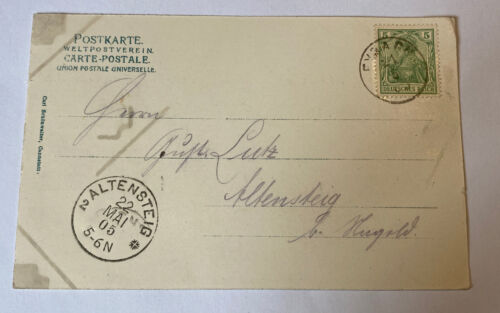 POSTKARTE.
WELTPOSTVEREIN.
CARTE-POSTALE.
UNION POSTALE UNIVERSELLE.
5 5
DEUTSCHES REICH
Herrn
Gust. Lutz
Altensteig
b. Nagold.
2 ALTENSTEIG
22
MAI
05
5-6N
Carl